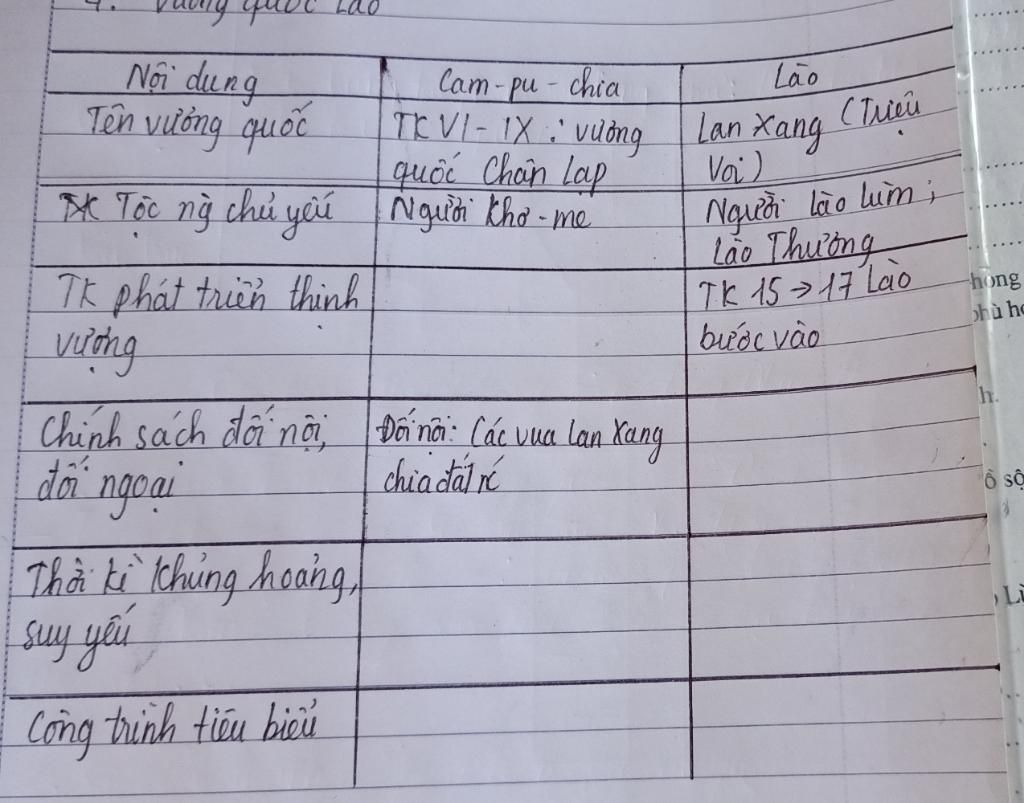 4. Vương quốc Lào
Nội dung
Cam-pu-chia
Lào
Tên vương quốc
TK VI-IX: vương
quốc Chân Lạp
Lan Xang (Triệu
Voi)
Tộc ng chủ yếu
Người Khơ-me
Người Lào Lùm;
Lào Thượng
TK phát triển thịnh
vượng
TK 15→17 Lào
bước vào
Chính sách đối nội,
đối ngoại
Đối nội: Các vua Lan Xang
chia đất
Thời kì khủng hoảng,
suy yếu
Công trình tiêu biểu
hong
phù h
h.
ồ sộ
Lì